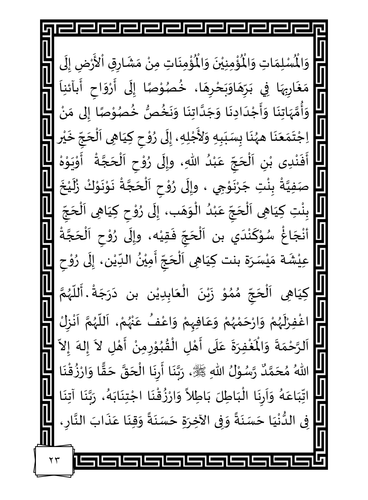 وَالْمُسْلِمَاتِ وَالْمُؤْمِنِيْنَ وَالْمُؤْمِنَاتِ مِنْ مَشَارِقِ اْلأَرْضِ إِلَى
مَغَارِبِهَا فِي بَرِّهَاوَبَحْرِهَا. خُصُوْصًا إِلَى أَرْوَاحِ أَبآئِناَ
وَأُمَّهَاتِنَا وَأَجْدَادِنَا وَجَدَّاتِنَا وَنَخُصُّ خُصُوْصًا إِلى مَنْ
اِجْتَمَعْنَا ههُنَا بِسَبَبِهِ وَلأَجْلِهِ، إِلَى رُوْحِ كِيَاهِى اَلْحَجّ خَيْر
أَفَنْدِى بْنِ اَلْحَجّ عَبْدُ اللهِ، وإِلَى رُوْحِ اَلْحَجَّةْ أَوْيَوْهْ
صَفِيَّةْ بِنْتِ جَرْنَوْجِي ، وإِلَى رُوْحِ اَلْحَجَّةْ نَوْنَوْكْ زُلَيْخَ
بِنْتِ كِيَاهِى اَلْحَجّ عَبْدُ الْوَهَب، إِلَى رُوْحِ كِيَاهِى اَلْحَجّ
اَنْجَاغْ سُوْكَنْدَي بن اَلْحَجّ فَقِيْه، وإِلَى رُوْحِ اَلْحَجَّةْ
عِيْشَة مَيْسَرَة بنت كِيَاهِى اَلْحَجّ أَمِيْنُ الدِّيْن، إِلَى رُوْحِ
كِيَاهِى اَلْحَجّ مُمُوْ زَيْنَ الْعَابِدِيْن بن دَرَجَةْ. اَللّهُمَّ
اغْفِرْلَهُمْ وَارْحَمْهُمْ وَعَافِهِمْ وَاعْفُ عَنْهُمْ، اَللّهُمَّ اَنْزِلْ
اَلرَّحْمَةَ وَالْمَغْفِرَةَ عَلَى أَهْلِ الْقُبُوْرِمِنْ أَهْلِ لاَ إِلهَ إِلاَّ
اللهُ مُحَمَّدٌ رَسُوْلُ اللهِ ﷺ، رَبَّنَا أَرِنَا الْحَقَّ حَقًّا وَارْزُقْنَا
اتِّبَاعَهُ وَأَرِنَا الْبَاطِلَ بَاطِلاً وَارْزُقْنَا اجْتِنَابَهُ، رَبَّنَا آتِنَا
فِى الدُّنْيَا حَسَنَةً وَفِى الآخِرَةِ حَسَنَةً وَقِنَا عَذَابَ النَّارِ،
٢٣